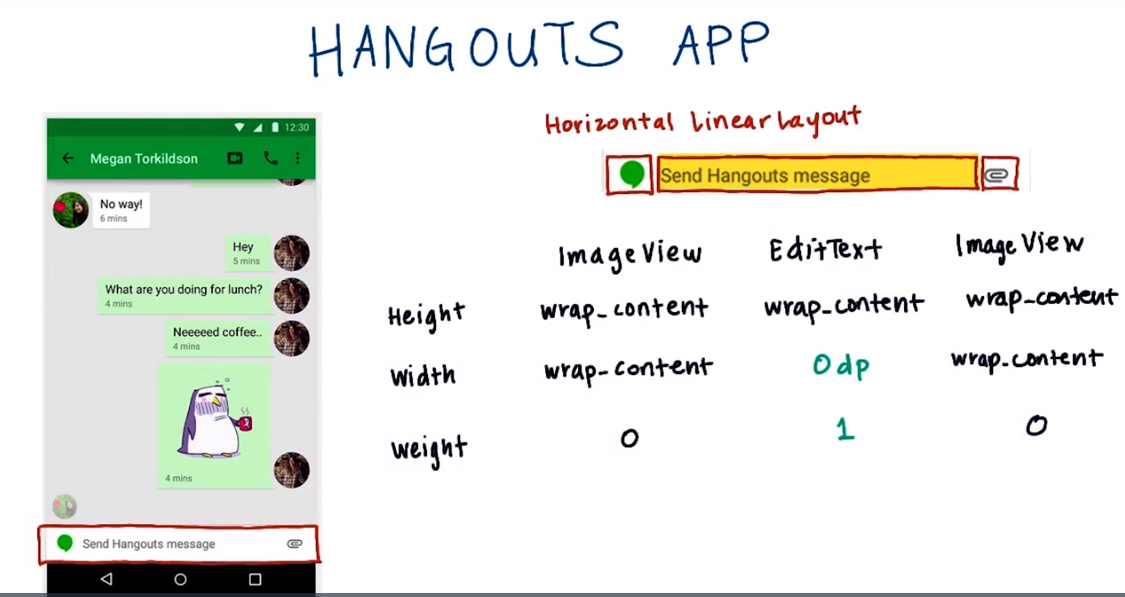 HANGOUTS APP
12:30
Megan Torkildson
No way!
6 mins
Hey
5 mins
What are you doing for lunch?
4 mins
Neeeeed coffee..
4 mins
4 mins
Send Hangouts message
Horizontal Linear Layout
Send Hangouts message
ImageView EditText ImageView
Height wrap_content wrap_content wrap_content
Width wrap_content 0dp wrap_content
Weight 0 1 0